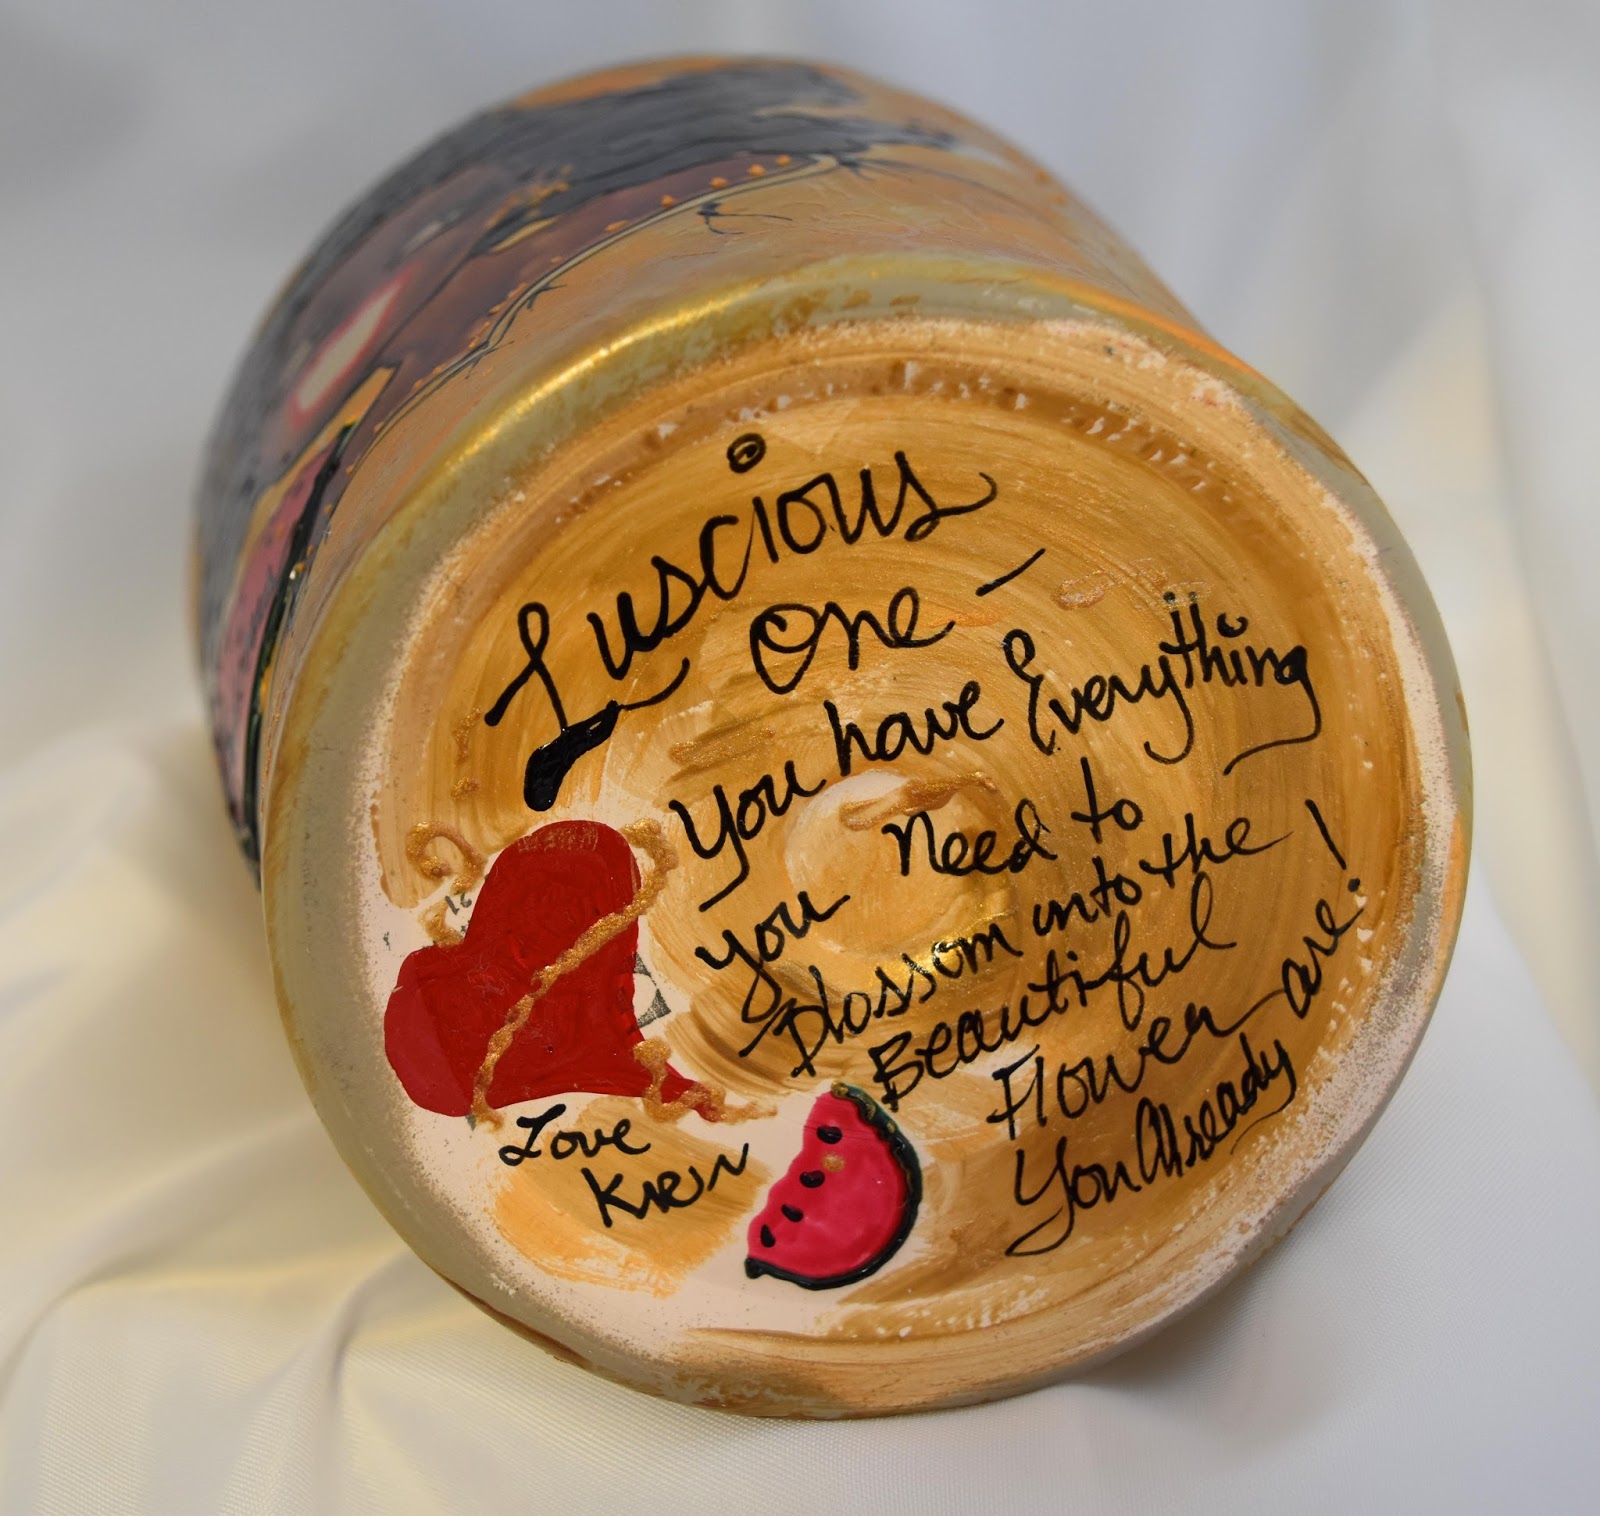 Luscious
One -
You have Everything
you need to
Blossom into the
Beautiful
Flower
You Already are!
Love
21